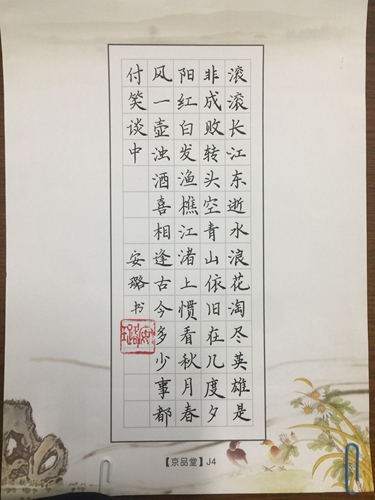 滚滚长江东逝水浪花淘尽英雄是
非成败转头空青山依旧在几度夕
阳红白发渔樵江渚上惯看秋月春
风一壶浊酒喜相逢古今多少事都
付笑谈中
安璐书
【京品堂】J4